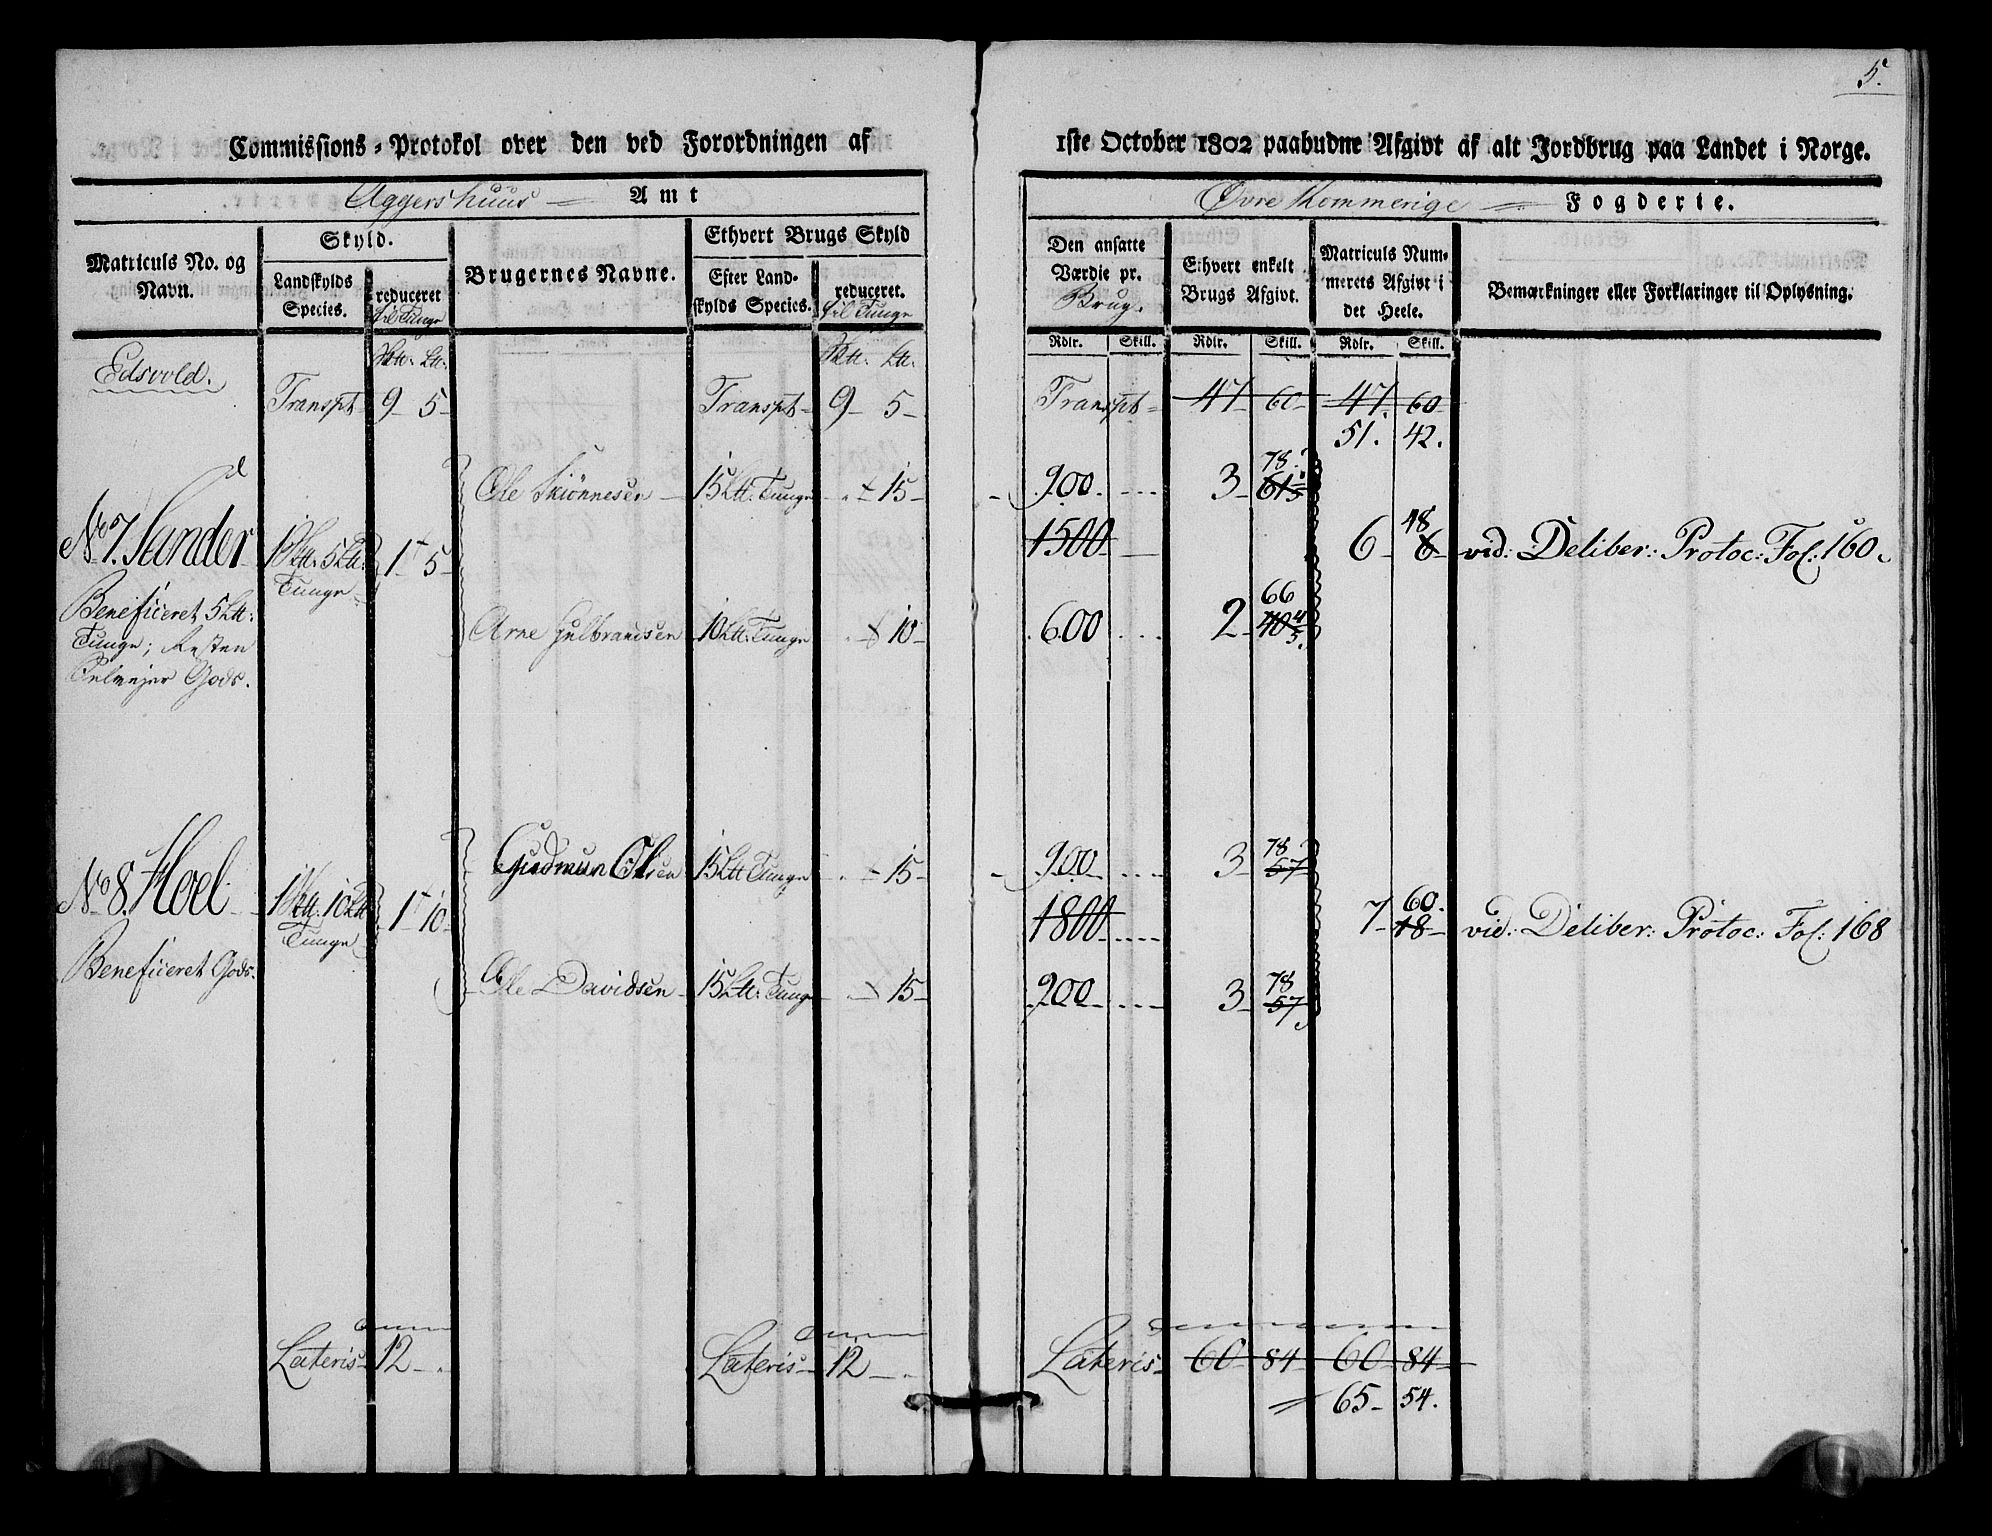 5.
Commissions-Protokol over den ved Forordningen af 1ste October 1802 paabudne Afgivt af alt Jordbrug paa Landet i Norge.
Aggershuus Amt
Øvre Rommerige Fogderie.
Matriculs No. og Navn.
Skyld.
Landskylds Species.
reduceret til Tunge
Brugernes Navne.
Ethvert Brugs Skyld
Efter Landskylds Species.
reduceret. til Tunge
Den ansatte Værdie pr. Brug.
Ethvert enkelt Brugs Afgivt.
Matriculs Nummerets Afgivt i det Heele.
Bemærkninger eller Forklaringer til Oplysning.
Rdlr. Skill. Rdlr. Skill. Rdlr. Skill.
Edsvold.
Transpt 9 - 5 - Transpt - 9 - 5 - Transpt - 47 - 60 - 47 - 60
51. 42.
Ole Skiønnesen - 15 Ltt. Tunge - 15 - 900. 3 - 78. 61
No 7. Sander 1 5 Ltt. Tunge 1 - 5 - 1500 6 - 48 6 vid: Deliber: Protoc: Fol: 160.
Beneficeret 5 Ltt:
Tunge; Resten
Gods.
Arne Gulbrandsen 10 Ltt: Tunge 10 - 600 2 - 66 40
Gudmun Olsen 15 Ltt Tunge 15 - 900 3 - 78 57
No 8. Hoel 1 10 Ltt Tunge 1 - 10 - 1800 7 - 60. 18 vid: Deliber: Protoc: Fol: 168
Beneficeret Gods.
Ole Davidsen 15 Ltt: Tunge 15 - 900 3 - 78 57
Lateris - 12 - Lateris - 12 - Lateris - 60 - 84 60 - 84
65 - 54.